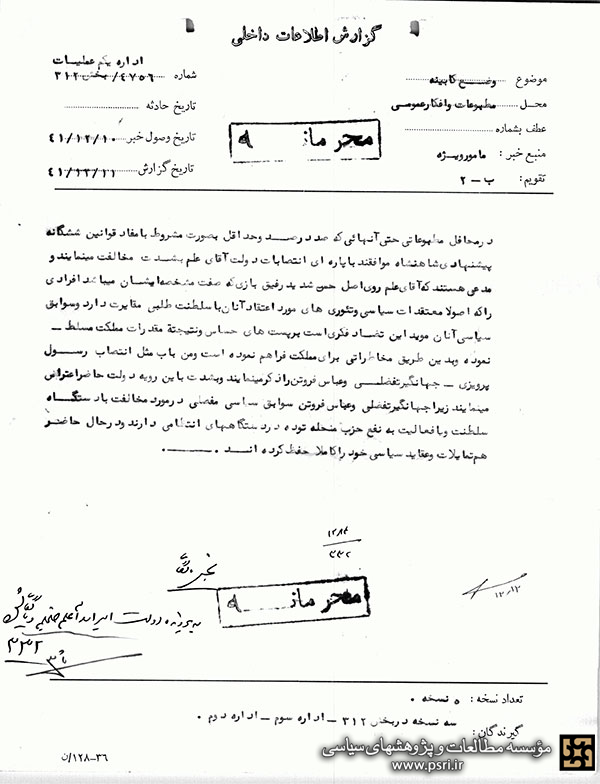 گزارش اطلاعات داخلی
اداره یکم عملیات
شماره ۴۷۵۶/بخش ۳۱۲
موضوع وضع کابینه
تاریخ حادثه
محل مطبوعات و افکار عمومی
تاریخ وصول خبر ۴۱/۱۲/۱۰
عطف بشماره
منبع خبر: مامور ویژه
تاریخ گزارش ۴۱/۱۲/۱۱
تقویم: ب-۲
محرمانه
در محافل مطبوعاتی حتی آنهائی که صددرصد و حداقل بصورت مشروط با مفاد قوانین ششگانه
پیشنهادی شاهنشاه موافقند با پاره ای انتصابات دولت آقای علم بشدت مخالفت مینمایند و
مدعی هستند که آقای علم روی اصل حس شدید رفیق بازی که صفت مشخصه ایشان میباشد افرادی
را که اصولا معتقدات سیاسی و تئوری های مورد اعتقاد آنان با سلطنت طلبی مغایرت دارد و سوابق
سیاسی آنان موید این تضاد فکری است بر پست های حساس و نتیجتة مقدرات مملکت مسلط -
نموده و بدین طریق مخاطراتی برای مملکت فراهم نموده است و من باب مثل انتصاب رسول
پرویزی - جهانگیر تفضلی و عباس فروتن را ذکر مینمایند و بشدت با این رویه دولت حاضر اعتراض
مینمایند زیرا جهانگیر تفضلی و عباس فروتن سوابق سیاسی مفصلی در مورد مخالفت با دستگاه
سلطنت و با فعالیت به نفع حزب منحله توده در دستگاههای انتظامی دارند و در حال حاضر
هم تمایلات و عقاید سیاسی خود را کاملا حفظ کرده اند.
۳۳۲
محرمانه
۱۲/۱۲
۳۳۲
تعداد نسخه: ۵ نسخه.
سه نسخه در بخش ۳۱۲ - اداره سوم - اداره دوم.
گیرندگان:
۳۶-۱۲۸/ن
مؤسسه مطالعات و پژوهشهای سیاسی
www.psri.ir